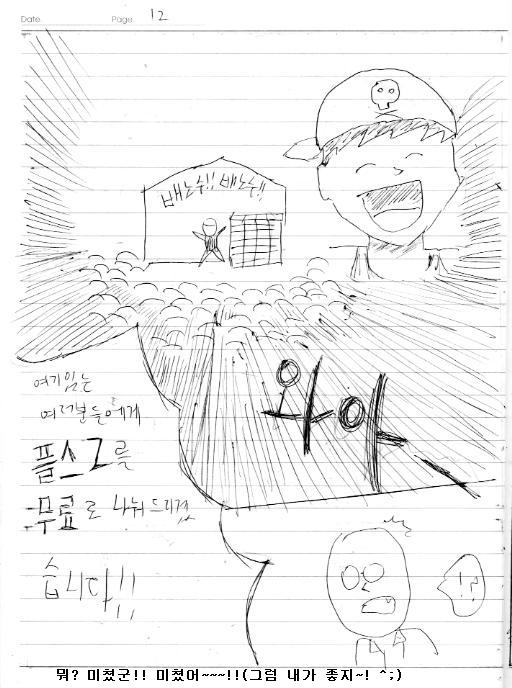 Date Page 12
배노수!! 배노수!!
와아
여기있는
여러분들에게
플스2를
무료로 나눠드리겠
습니다!!
뭐? 미쳤군!! 미쳤어~~~!!(그럼 내가 좋지~! ^;)